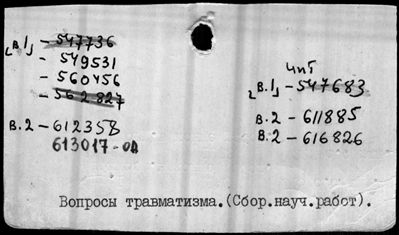 в.1 - 547736
- 549531
- 560456
- 562827
в.2 - 612358
613017-од
чит
в.1 - 547683
в.2 - 611885
в.2 - 616826
Вопросы травматизма.(Сбор.науч.работ).